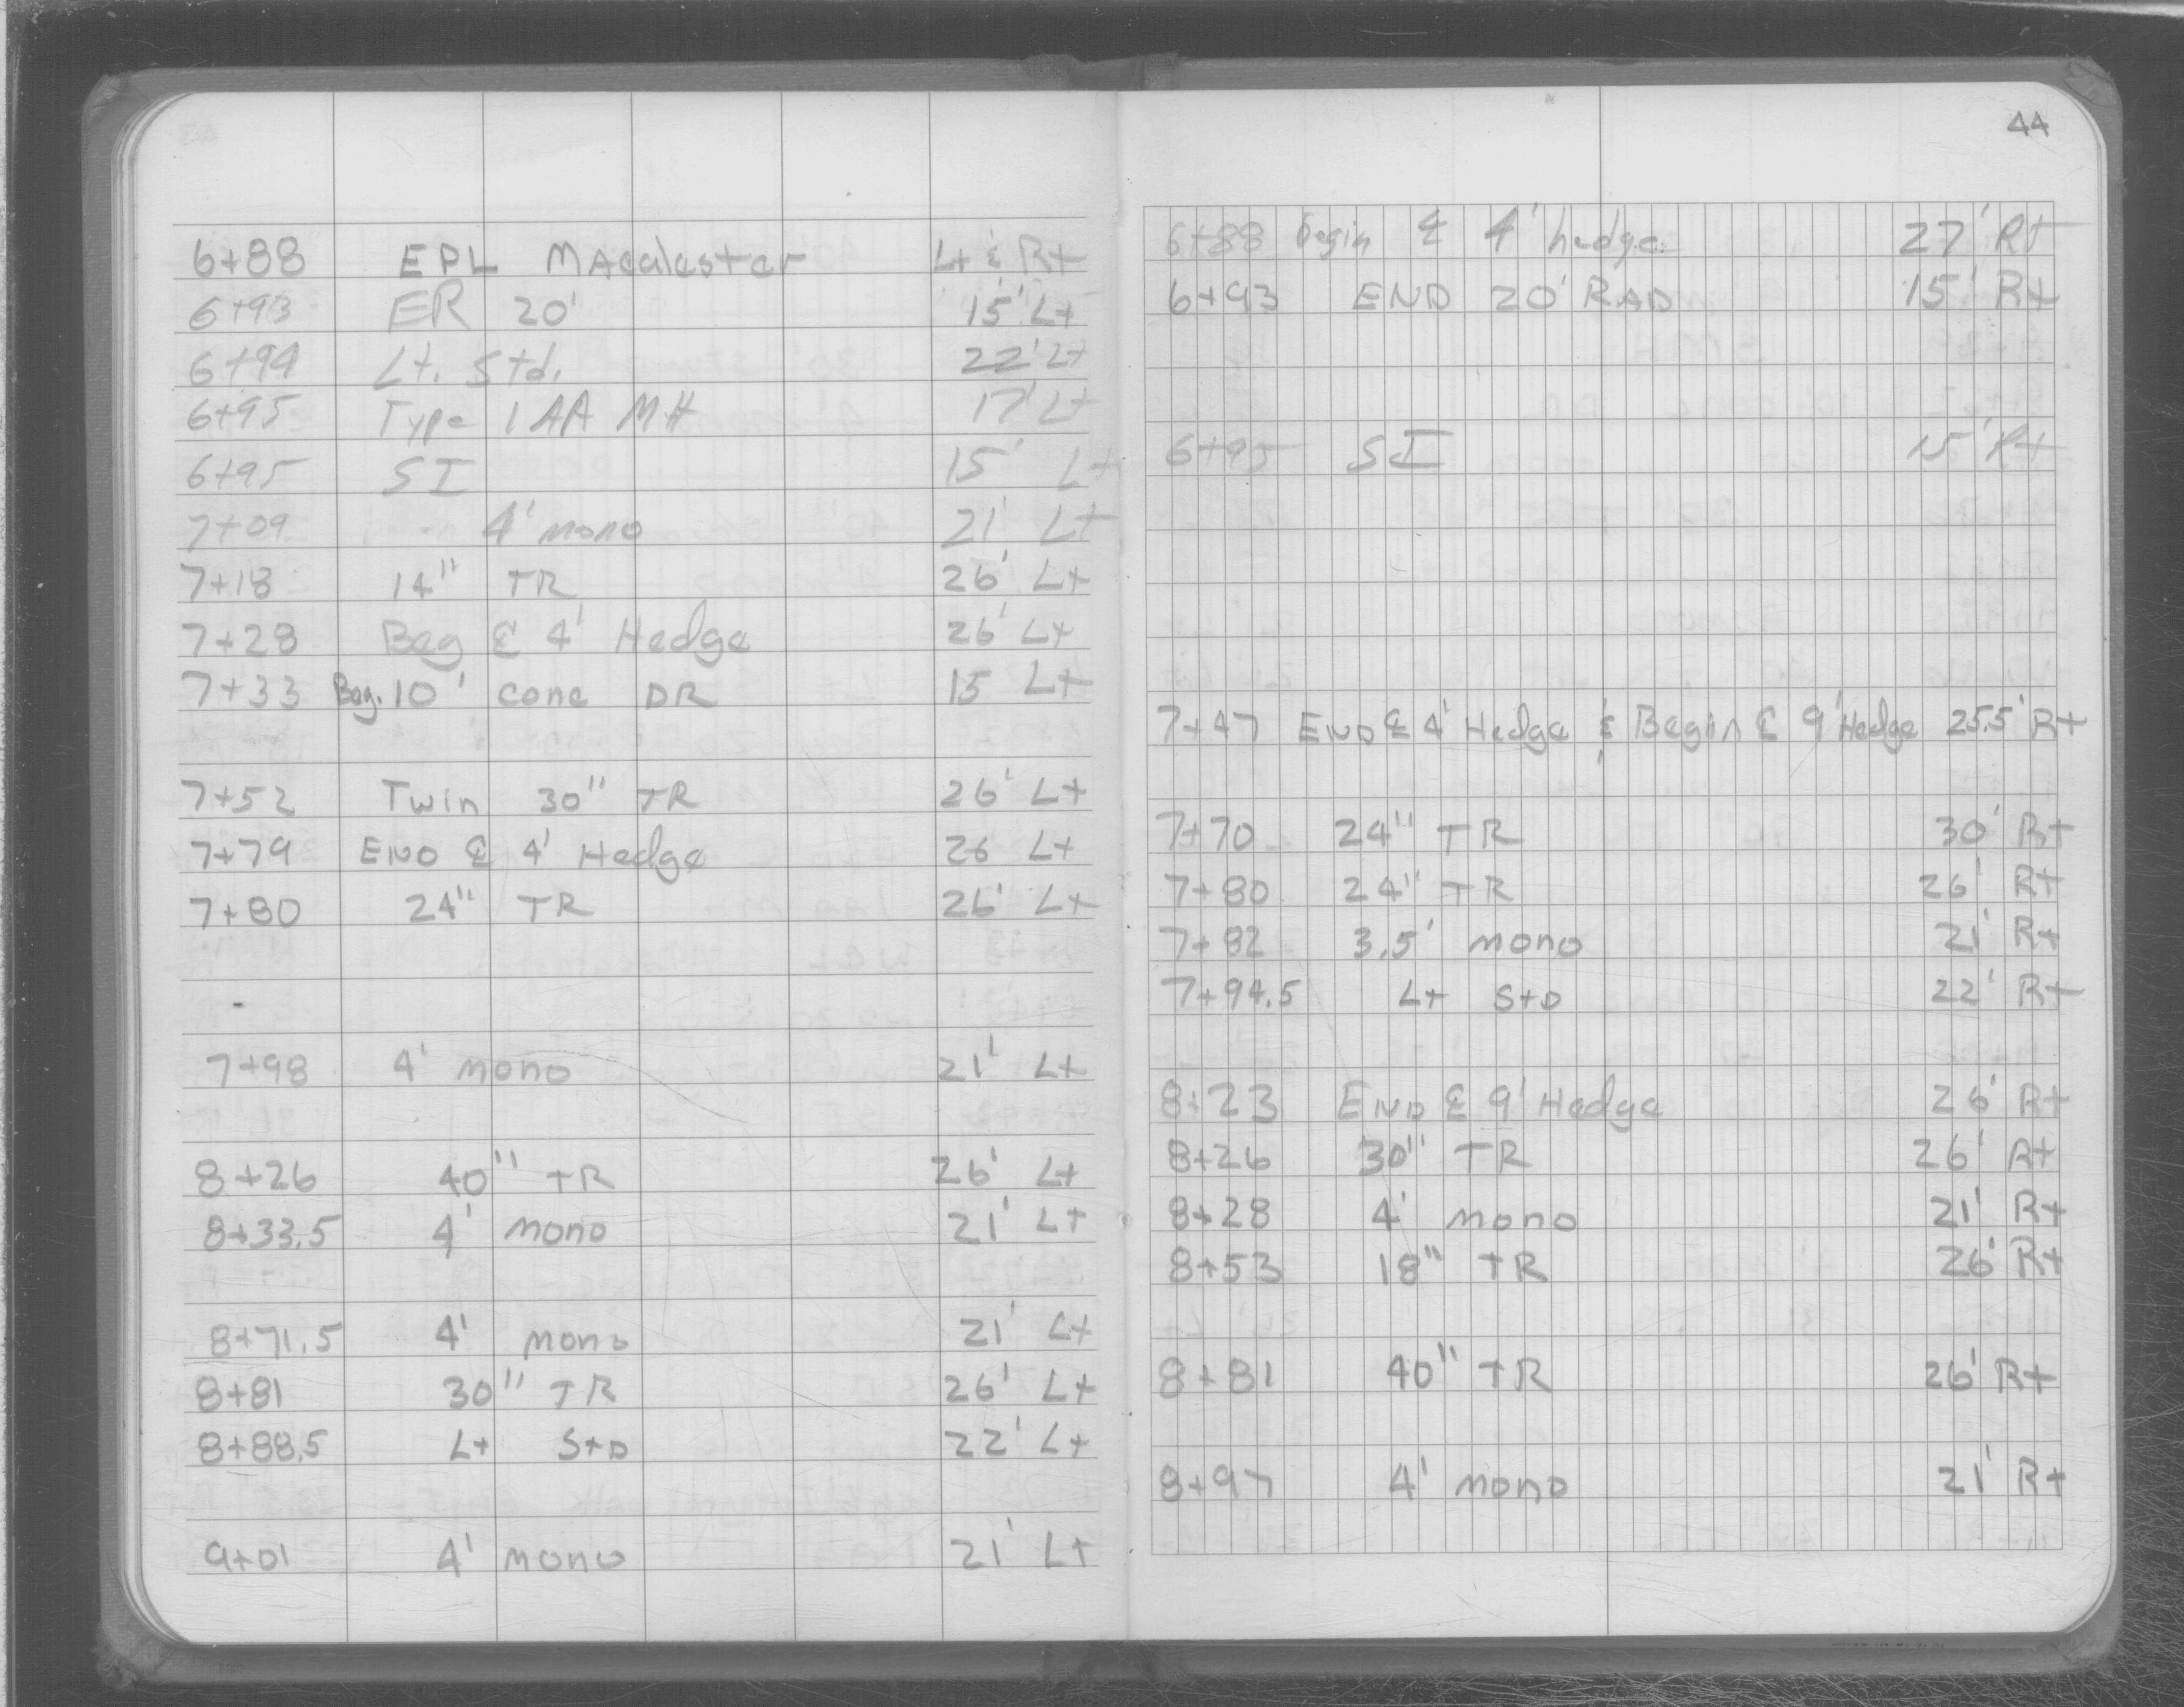 6+88 EPL MAcalester Lt & Rt
6+93 ER 20' 15' Lt
6+94 Lt. Std. 22' Lt
6+95 Type 1 AA MH 17' Lt
6+95 SI 15' Lt
7+09 4' mono 21' Lt
7+18 14" TR 26' Lt
7+28 Beg ℄ 4' Hedge 26' Lt
7+33 Beg. 10' conc DR 15 Lt
7+52 Twin 30" TR 26' Lt
7+79 END ℄ 4' Hedge 26 Lt
7+80 24" TR 26' Lt
7+98 4' mono 21' Lt
8+26 40" TR 26' Lt
8+33.5 4' mono 21' Lt
8+71.5 4' mono 21' Lt
8+81 30" TR 26' Lt
8+88.5 Lt StD 22' Lt
9+01 4' mono 21' Lt
44
6+88 begin ℄ 4' hedge 27' Rt
6+93 END 20' RAD 15' Rt
6+95 SI 15' Rt
7+47 END ℄ 4' Hedge & Begin ℄ 9' Hedge 25.5' Rt
7+70 24" TR 30' Rt
7+80 24" TR 26' Rt
7+82 3.5' mono 21' Rt
7+94.5 Lt StD 22' Rt
8+23 END ℄ 9' Hedge 26' Rt
8+26 30" TR 26' Rt
8+28 4' mono 21' Rt
8+53 18" TR 26' Rt
8+81 40" TR 26' Rt
8+97 4' mono 21' Rt